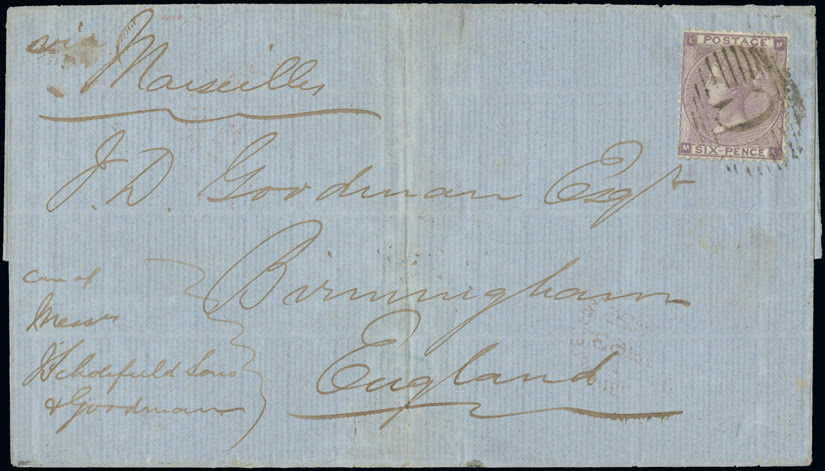 via
Marseilles
L POSTAGE M
M SIX-PENCE L
J. D. Goodman Esqr
Birmingham
England
care of
Messrs
J Schofield Sons
& Goodman